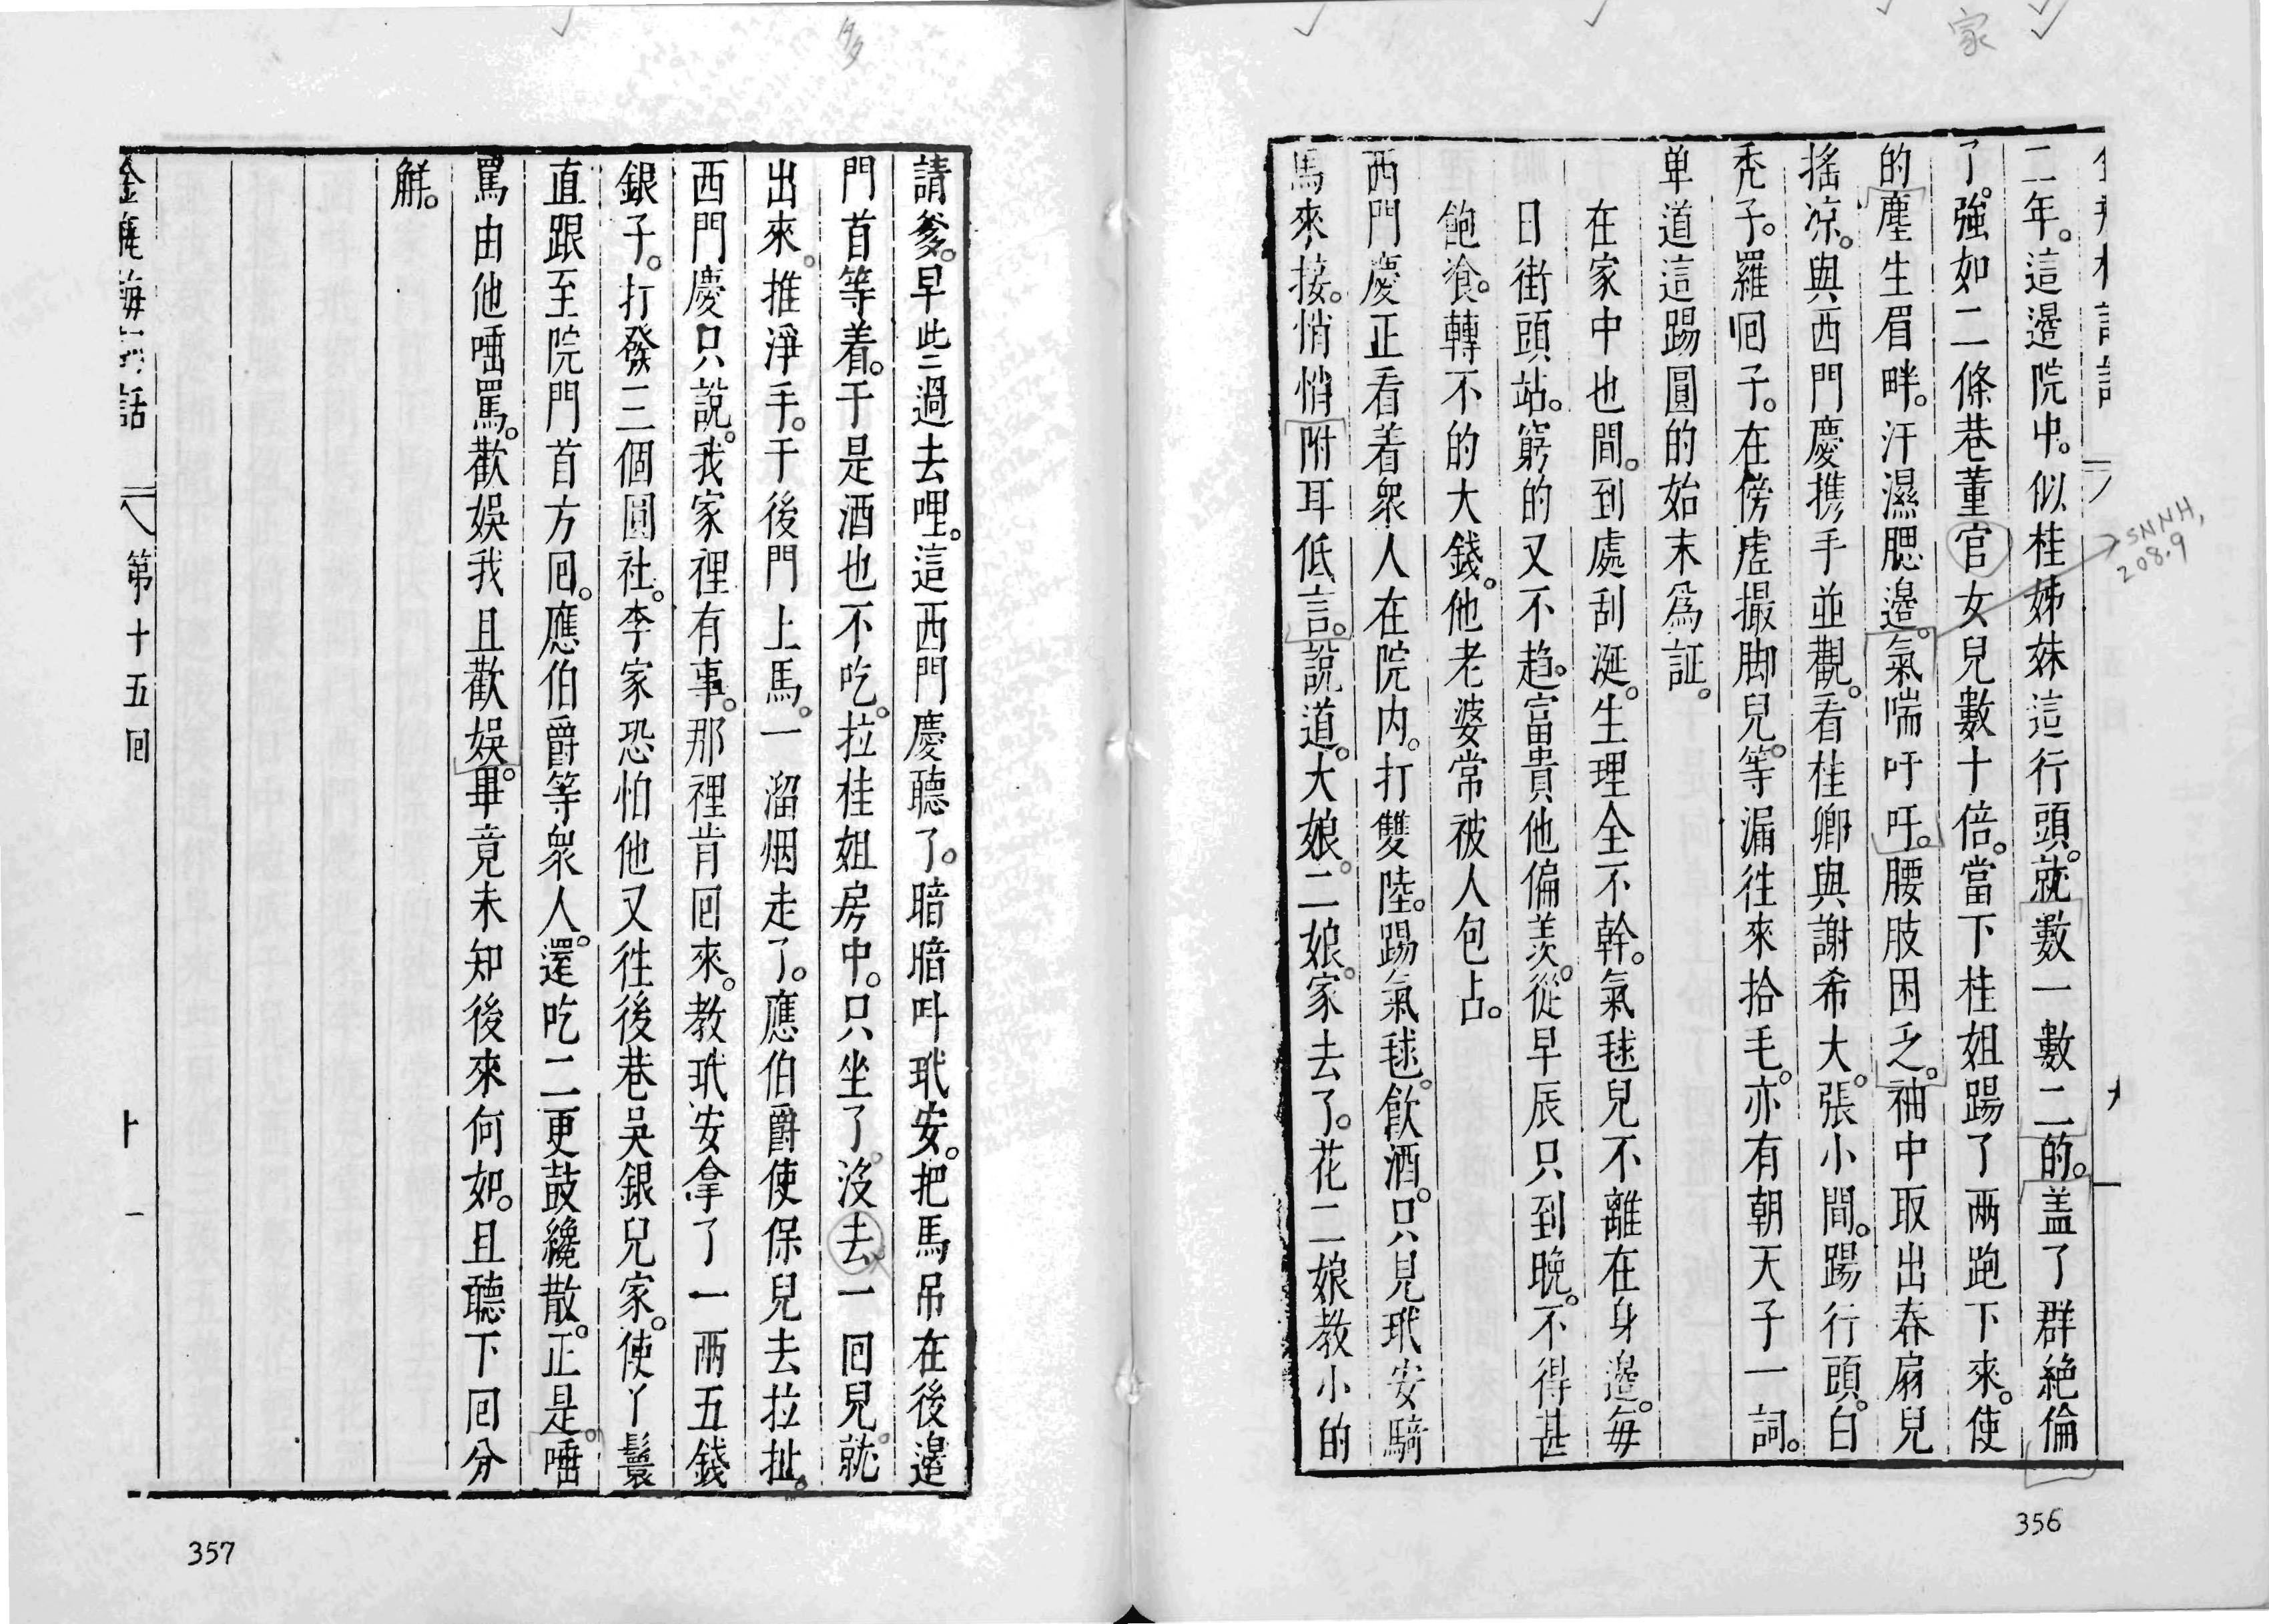 家
二年。這邊院中。似桂姊妹這行頭。就數一數二的。盖了群絶倫
了。強如二條巷董官女兒數十倍。當下桂姐踢了两跑下來。使
的塵生眉畔。汗濕腮邊。氣喘吁吁。腰肢困乏。袖中取出春扇兒
搖凉。與西門慶携手並觀。看桂卿與謝希大。張小閒。踢行頭。白
秃子。羅囘子。在傍虗撮脚兒。等漏徃來拾毛。亦有朝天子一詞。
单道這踢圓的始末爲証。
在家中也閒。到處刮涎。生理全不幹。氣毬兒不離在身邊。每
日街頭站。窮的又不趋。富貴他偏羨。從早辰只到晚。不得甚
飽飡。轉不的大錢。他老婆常被人包占。
西門慶正看着衆人在院内。打雙陸。踢氣毬。飲酒。只見玳安騎
馬來接。悄悄附耳低言。說道。大娘。二娘。家去了。花二娘教小的
SNNH,
208.9
356
請爹。早些二過去哩。這西門慶聽了。暗暗呌玳安。把馬吊在後邉
門首等着。于是酒也不吃。拉桂姐房中。只坐了。沒去一囘兒。就
出來。推淨手。于後門上馬。一溜烟走了。應伯爵使保兒去拉扯。
西門慶只說。我家裡有事。那裡肯囘來。教玳安拿了一兩五錢
銀子。打發三個圓社。李家恐怕他又徃後巷吳銀兒家。使丫鬟
直跟至院門首方囘。應伯爵等衆人。還吃二更鼓纔散。正是。唾
罵由他唾罵。歡娛我且歡娛。畢竟未知後來何如。且聽下囘分
觧。
第十五囘
357